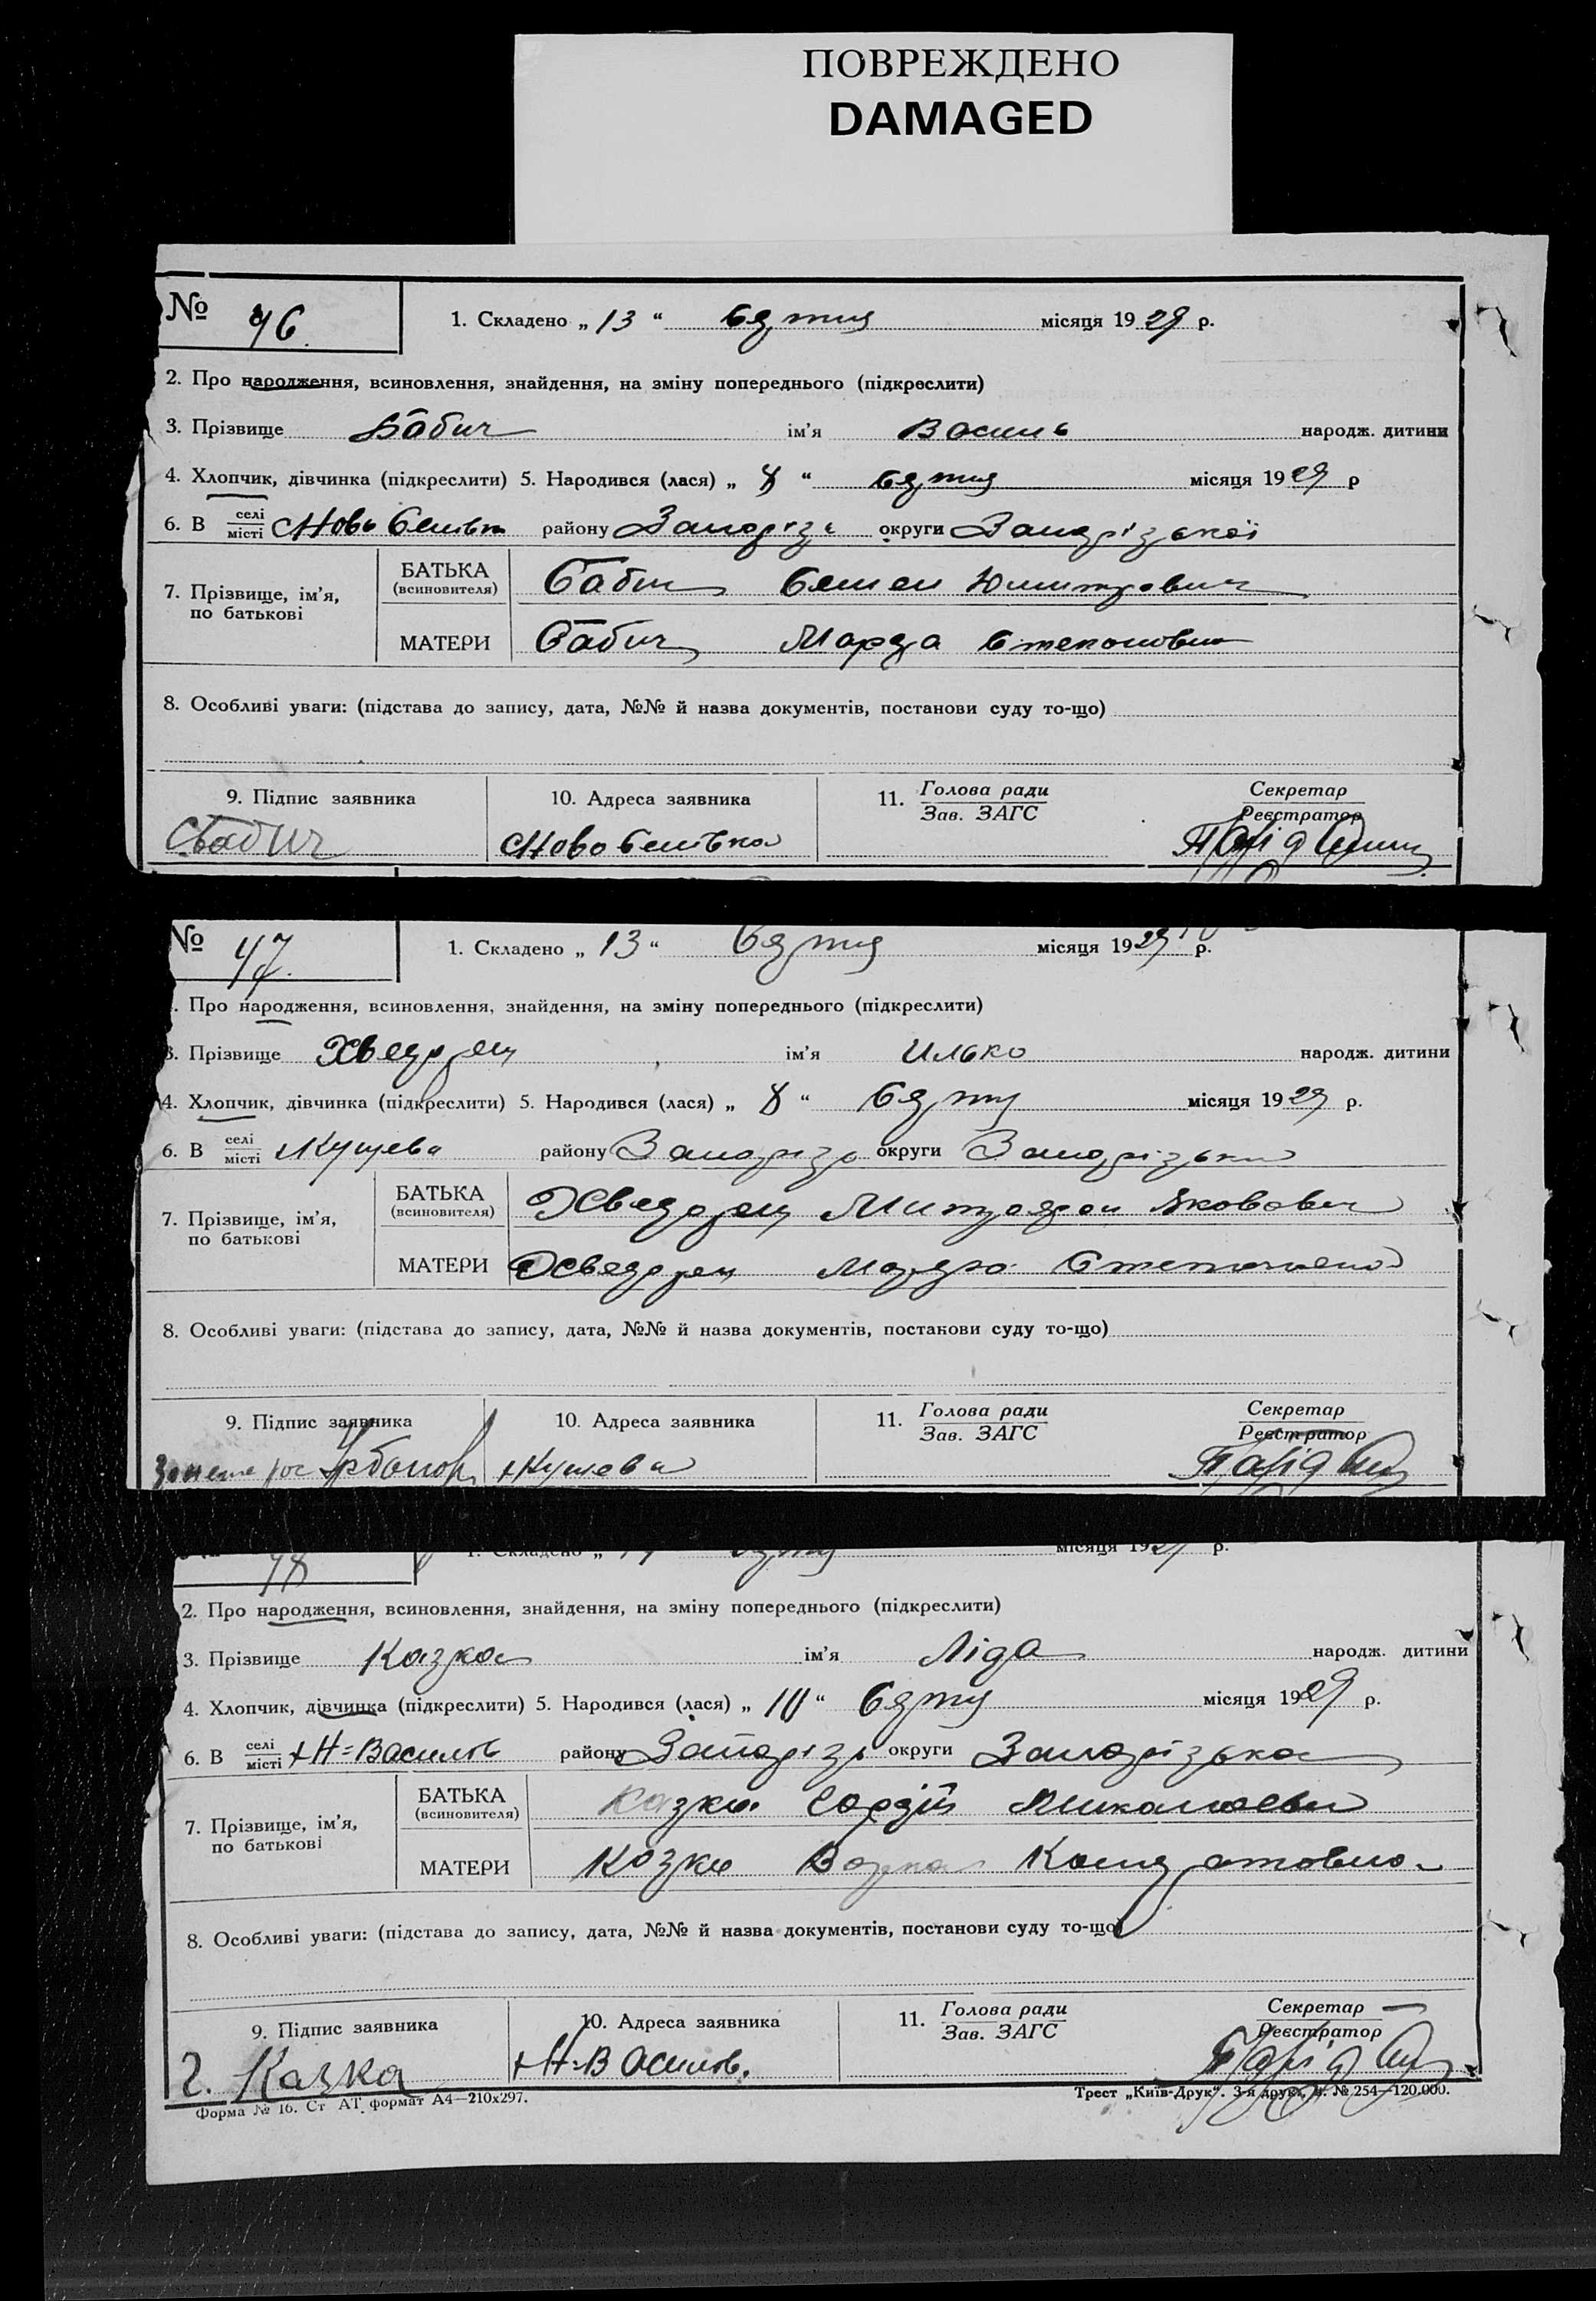 ПОВРЕЖДЕНО
DAMAGED
№ 46. 1. Складено „ 13 “ місяця 1929 р.
2. Про народження, всиновлення, знайдення, на зміну попереднього (підкреслити)
3. Прізвище Бабич ім’я Василь народж. дитини
4. Хлопчик, дівчинка (підкреслити) 5. Народився (лася) „ 8 “ місяця 1929 р
6. В селі місті району Запоріз округи Запорізької
7. Прізвище, ім’я, по батькові
БАТЬКА (всиновителя) Бабич Семен
МАТЕРИ Бабич Степановна
8. Особливі уваги: (підстава до запису, дата, №№ й назва документів, постанови суду то-що)
9. Підпис заявника 10. Адреса заявника 11. Голова ради Зав. ЗАГС Секретар Реєстратор
Бабич
№ 47. 1. Складено „ 13 “ місяця 1929 р.
Про народження, всиновлення, знайдення, на зміну попереднього (підкреслити)
3. Прізвище Хведорец ім’я Илько народж. дитини
4. Хлопчик, дівчинка (підкреслити) 5. Народився (лася) „ 8 “ місяця 1929 р.
6. В селі місті Кущева району округи
7. Прізвище, ім’я, по батькові
БАТЬКА (всиновителя) Хведорец Митрофан Яковович
МАТЕРИ Хведорец
8. Особливі уваги: (підстава до запису, дата, №№ й назва документів, постанови суду то-що)
9. Підпис заявника 10. Адреса заявника 11. Голова ради Зав. ЗАГС Секретар Реєстратор
Кущева
48 1. Складено „ місяця 1929 р.
2. Про народження, всиновлення, знайдення, на зміну попереднього (підкреслити)
3. Прізвище Казка ім’я Ліда народж. дитини
4. Хлопчик, дівчинка (підкреслити) 5. Народився (лася) „ 10 “ місяця 1929 р.
6. В селі місті Н-Василів району Запоріз округи Запорізька
7. Прізвище, ім’я, по батькові
БАТЬКА (всиновителя) Казка Сергій
МАТЕРИ Казка
8. Особливі уваги: (підстава до запису, дата, №№ й назва документів, постанови суду то-що)
9. Підпис заявника 10. Адреса заявника 11. Голова ради Зав. ЗАГС Секретар Реєстратор
Казка Н-Василів.
Форма № 16. Ст АТ формат А4—210х297. Трест „Київ-Друк“. 3-я друк, № 254—120.000.